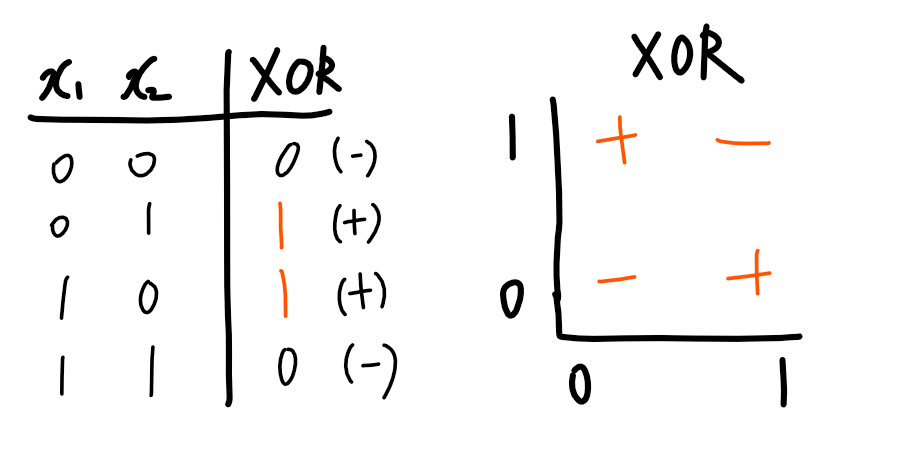 x₁ x₂ XOR
0 0 0 (-)
0 1 1 (+)
1 0 1 (+)
1 1 0 (-)
XOR
1 + -
0 - +
0 1